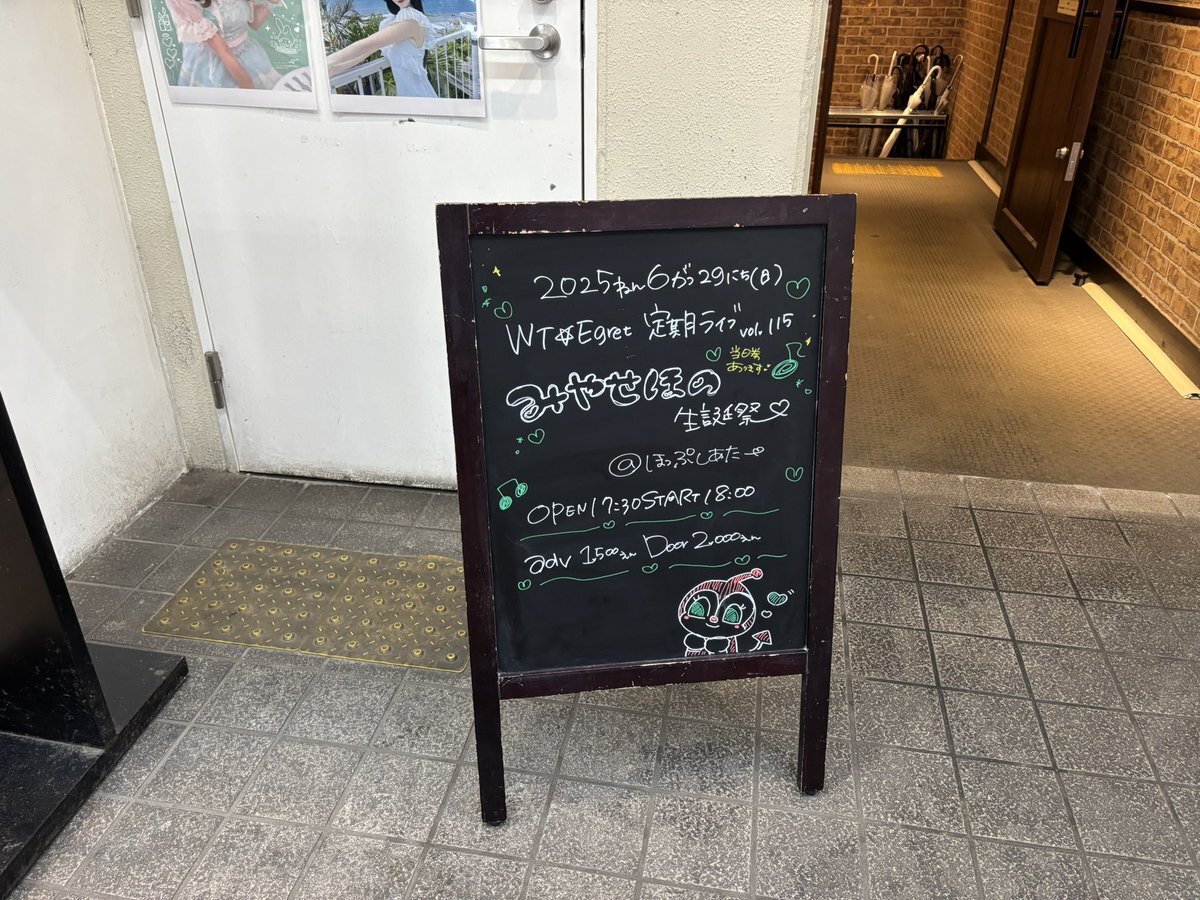 2025ねん6がつ29にち(日)
WT☆Egret 定期ライブ vol.115
当日券
あります
みやせほの
生誕祭♡
@ぽっぷしあたー
OPEN17:30START18:00
adv 1,500えん Door 2,000えん